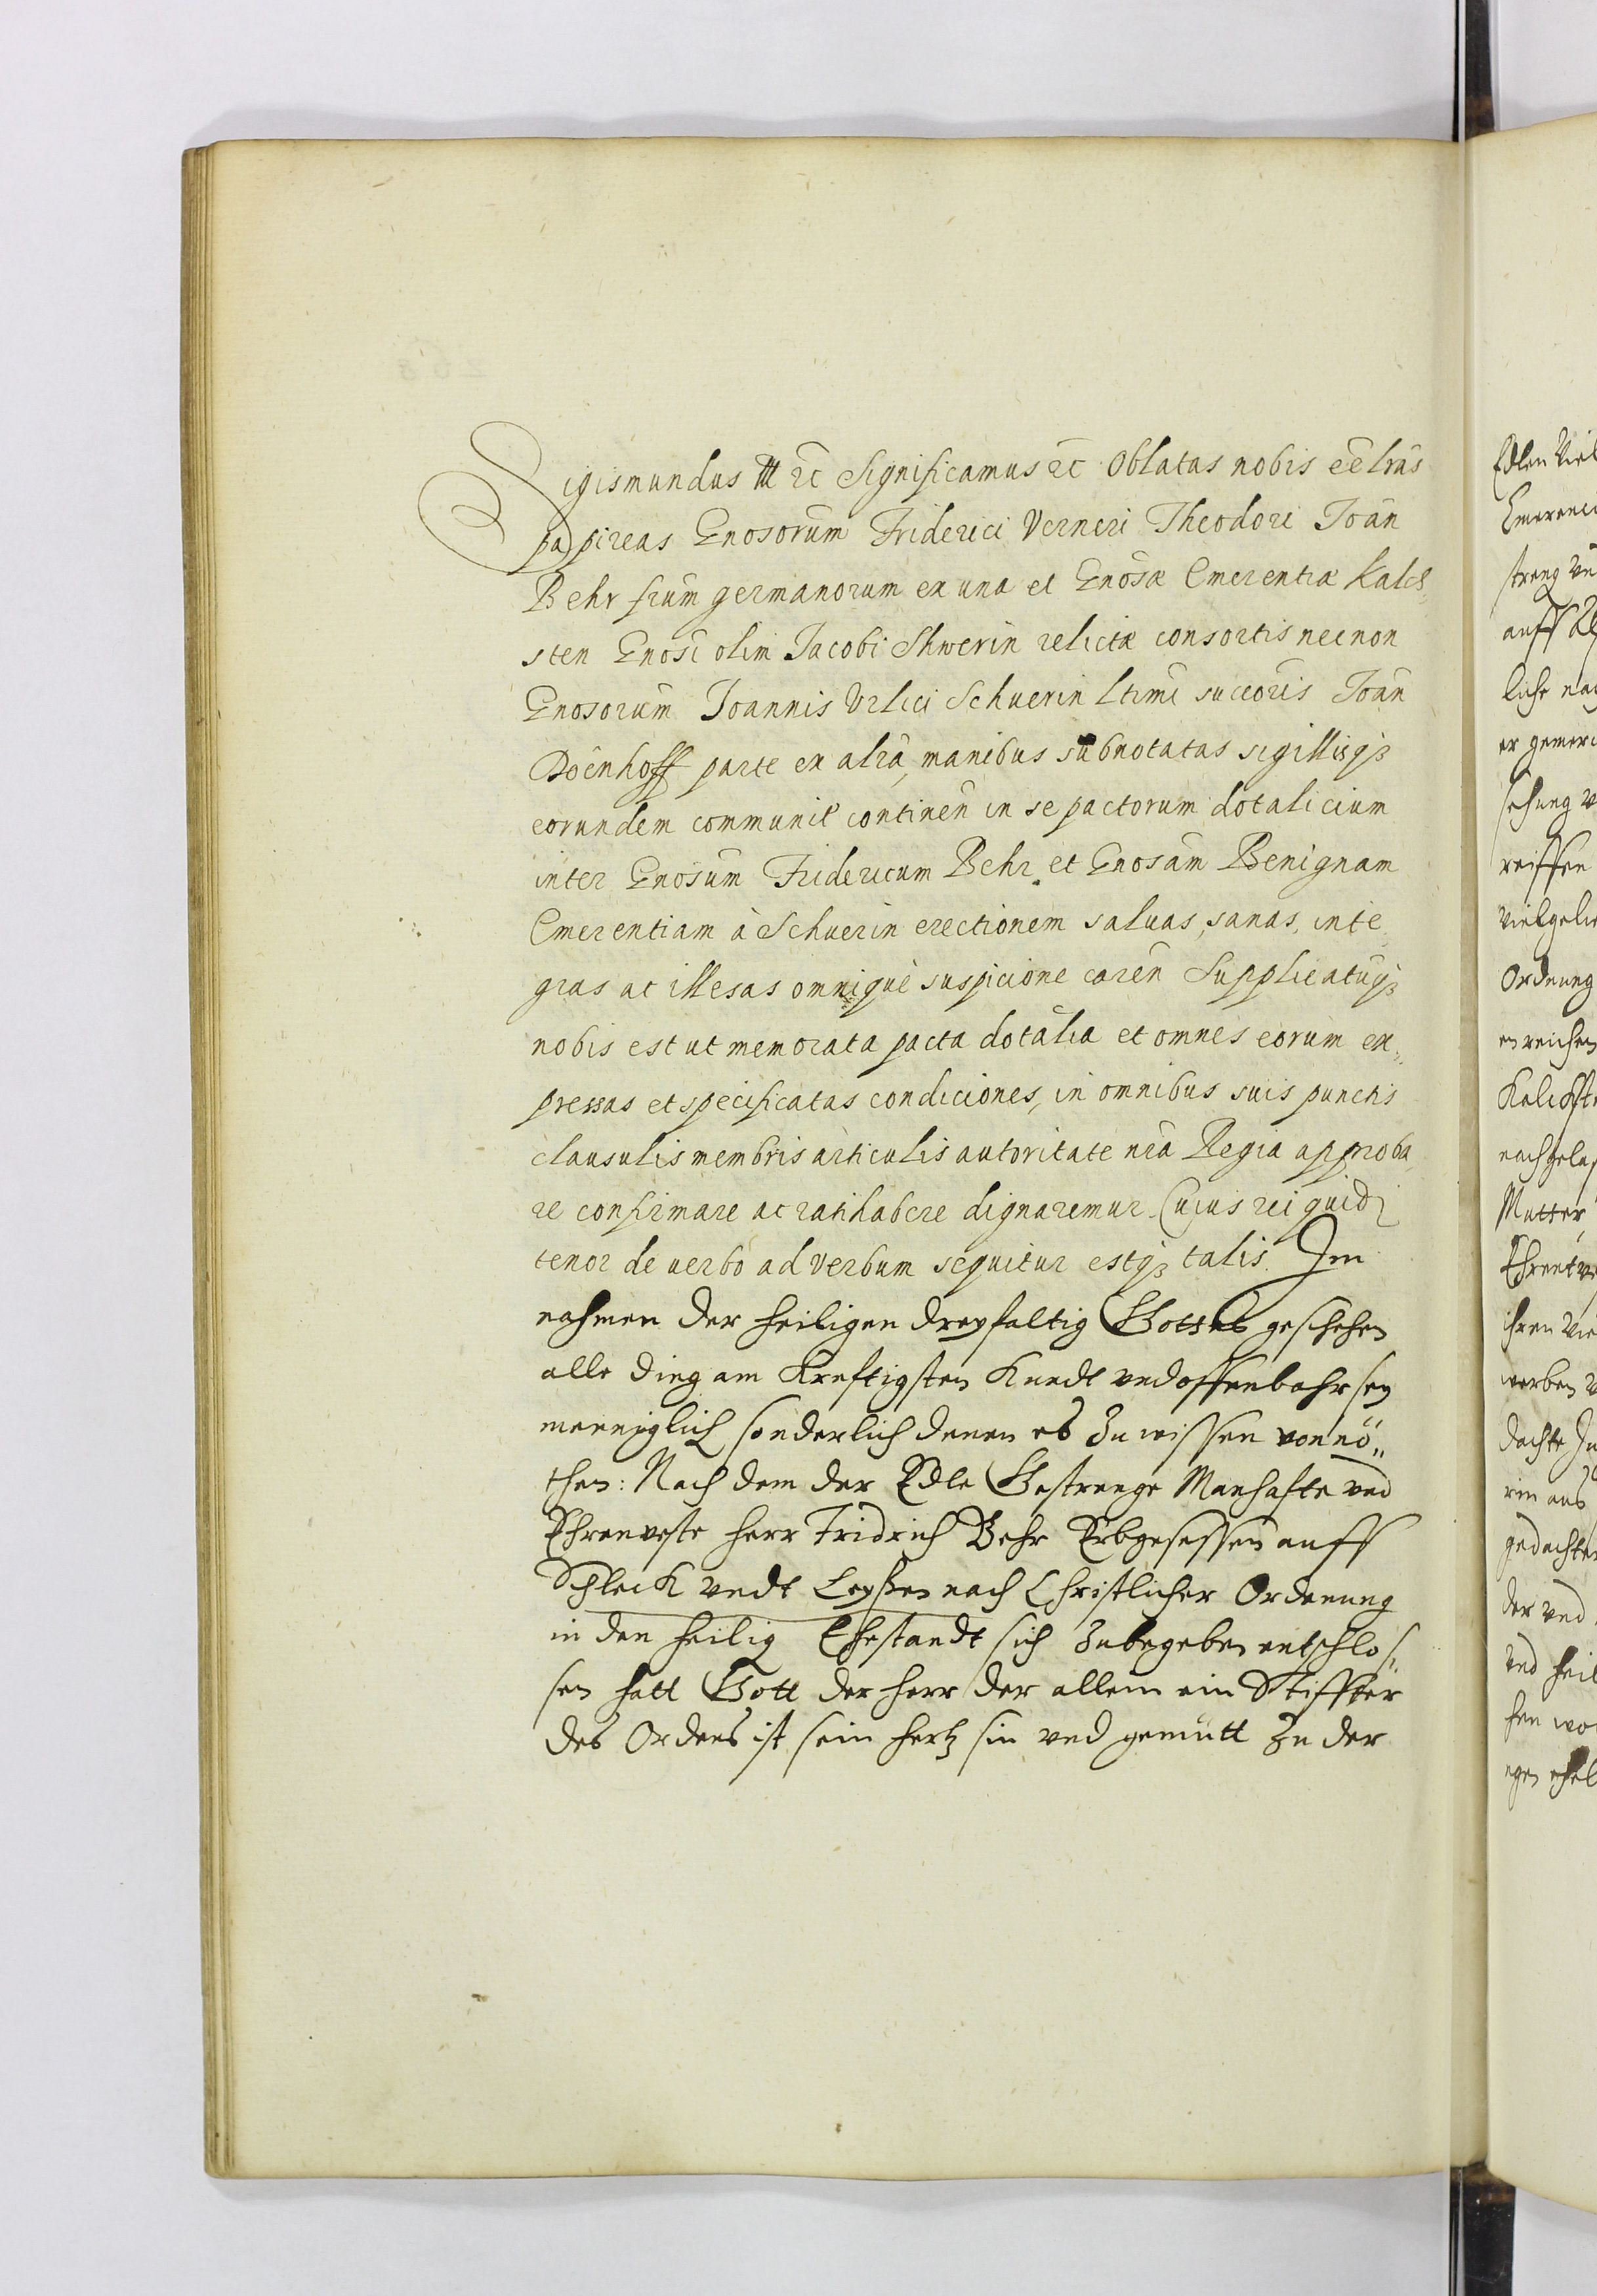 Sigismundus III ēc Significamus ēc Oblatas nobis eē lrās
papireas Gnosorum Friderici Verneri Theodori Ioān
Behr frum germanorum ex una et Gnosæ Emerentiæ Kalck„
sten Gnosi olim Jacobi Shwerin relictæ consortis necnon
Gnosorum Joannis Vrlici Schuerin ltimi succoris Ioān
Doenhoff parte ex altā, manibus subnotatas sigillisqꝫ
eorundem communit continēn in se pactorum dotalicium
inter Gnosum Fridericum Behr et Gnosam Benignam
Emerentiam à Schuerin erectionem saluas, sanas, inte„
gras ac illesas omnique suspicione carēn Supplicatūqꝫ
nobis est ut memorata pacta dotalia et omnes eorum ex„
pressas et specificatas condiciones, in omnibus suis punctis
clausulis membris articulis autoritate nrā Regia approba„
re confirmare ac ratihabere dignaremur. Cujus rei quidʒ
tenor de uerbo ad verbum sequitur estqꝫ talis. Im
nahmen der heiligen dreyfaltig Gottes geschehen
alle ding am Kreftigsten Kundt vnd offenbahr sey
menniglich sonderlich denen es zu wissen vonnö„
then: Nach dem der Edle Gestrenge Manhafte vnd
Ehrenveste herr Fridrich Behr Erbgesessen auff
Schleck vndt Leyßen nach Christlicher Ordnung
in den heilig Ehestandt sich zubegeben entschlos„
sen hatt Gott der herr der allein ein Stiffter
des Ordens ist sein hertz sin vnd gemütt zu der
Edlen Viel
Emerenci
streng
auff
liche
er
sehung
reissen
vielgelie
Ordnung
Kalckst
nachgelas
Mutter
Ehrentve
ihren vie
werben
dachte
rin aus
gedachter
der vnd
vnd heil